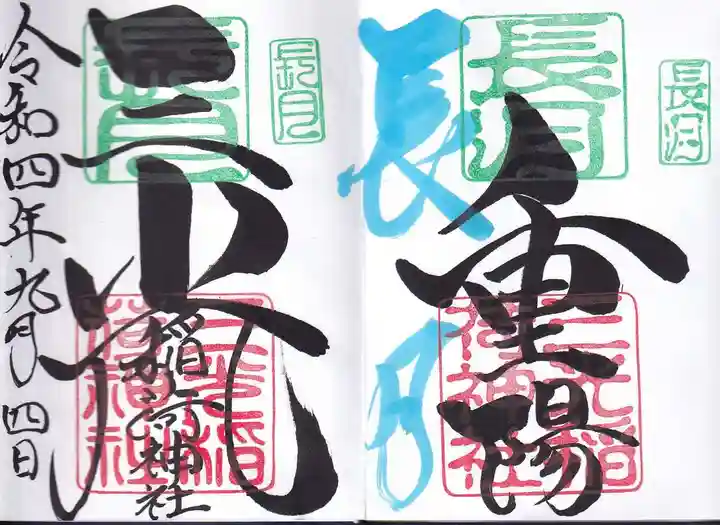 長月
重陽
長月
三光稲荷神社
三光
稲荷神社
長月
長月
三光稲荷神社
令和四年九月四日